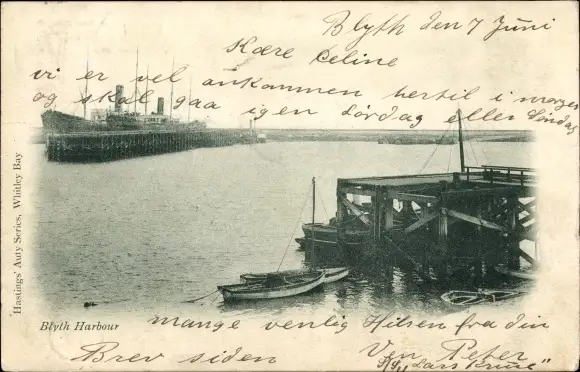 Blyth den 7 Juni
Kære Celine
vi er vel ankommen hertil i morges
og skal gaa igen Lørdag eller Søndag
Hastings' Auty Series, Whitley Bay
Blyth Harbour
mange venlig Hilsen fra din
Brev siden Ven Peter
S/S "Lars Kruse"